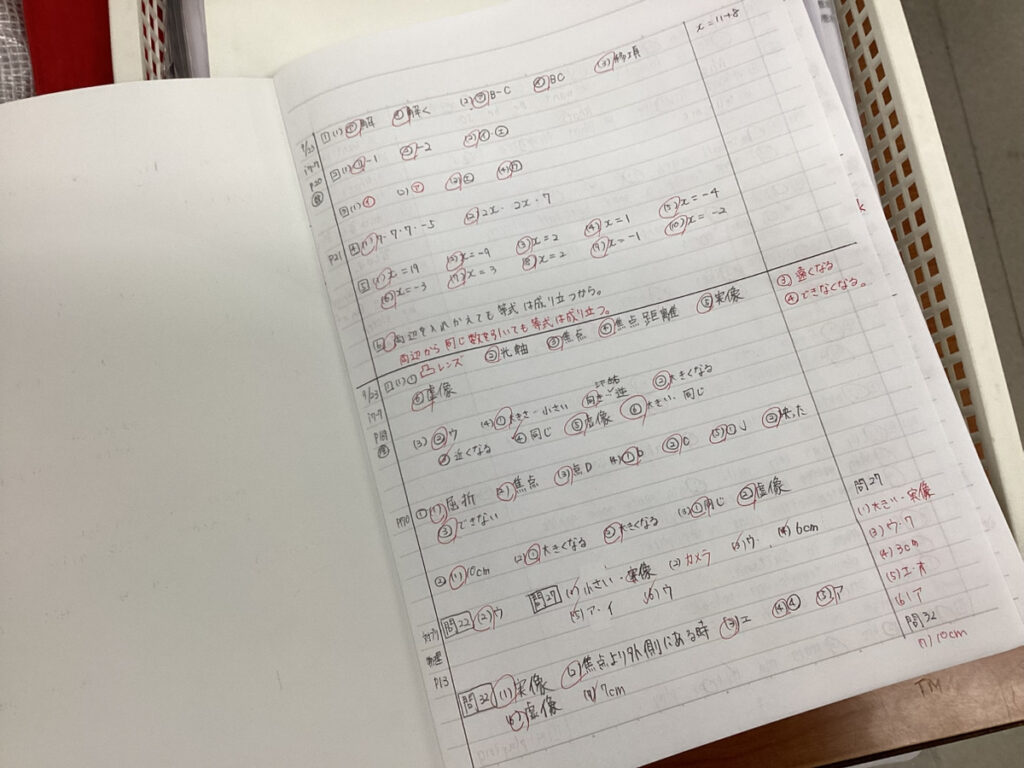 x=11+8
9/23
P20
1 (1) ア 解 イ 解く (2) ア B-C イ BC (3) 移項
2 (1) ① -1 ② -2 (2) イ・エ
3 (1) イ (2) ア (3) エ (4) ウ
P21
4 (1) 7・7・7・-5 (2) 2x・2x・7
5 (1) x=19 (2) x=-9 (3) x=2 (4) x=1 (5) x=-4
(6) x=-3 (7) x=3 (8) x=2 (9) x=-1 (10) x=-2
6 両辺を入れかえても等式は成り立つから。
両辺から同じ数をひいても等式は成り立つ。
9/23
1 (1) ① 凸レンズ ② 光軸 ③ 焦点 ④ 焦点距離 ⑤ 実像
⑥ 虚像
(3) ② ウ (4) ① 大きさ…小さい 向き…逆 ② 大きくなる
③ 遠くなる
④ できなくなる。
近くなる 同じ ⑤ 虚像 ⑥ 大きい・同じ
P70
① (1) 屈折 (2) 焦点 (3) 点D (4) ① D ② C (5) ① ↓ ② 狭った
③ できない
② (1) 10cm (2) ① 大きくなる ② 大きくなる (3) ① 同じ ② 虚像
P13
問22 (2) ウ 問27 (1) 小さい・実像 (2) カメラ (3) ウ (4) 6cm
(5) ア・イ (6) ウ
問32 (1) 実像 (2) 焦点より外側にある時 (3) エ (4) ④ (5) ア
(6) 虚像 (7) 7cm
問27
(1) 大きい・実像
(3) ウ・ク
(4) 3cm
(5) エ・オ
(6) ア
問32
(7) 10cm
TM